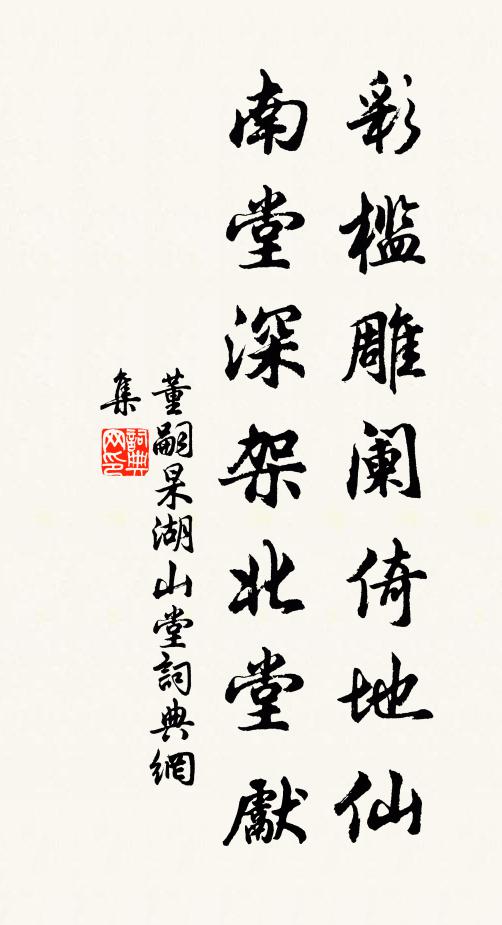 彩檻雕阑倚地仙
南堂深架北堂獻
董嗣杲湖山堂詞典網
集
詞典
网印